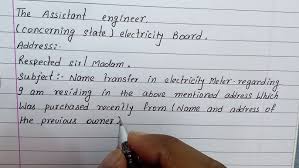 The Assistant engineer.
(concerning state) electricity Board.
Address:-
Respected sir/ Madam.
Subject:- Name transfer in electricity Meter regarding
I am residing in the above mentioned address Which
Was purchased recently from (Name and address of
the previous owner)